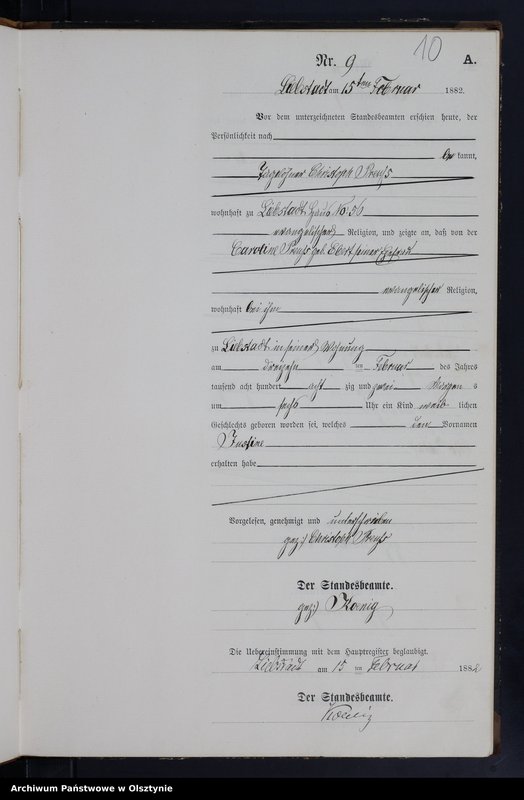 10
Nr. 9 A.
Liebstadt am 15ten Februar 1882.
Vor dem unterzeichneten Standesbeamten erschien heute, der
Persönlichkeit nach
be kannt,
Tagelöhner Christoph Preuß
wohnhaft zu Liebstadt Haus No: 56
evangelischer Religion, und zeigte an, daß von der
Caroline Preuß geb. Ebert seiner Ehefrau
evangelischer Religion,
wohnhaft bei ihm
zu Liebstadt in seiner Wohnung
am dreizehn ten Februar des Jahres
tausend acht hundert acht zig und zwei Morgen s
um sechs Uhr ein Kind weib lichen
Geschlechts geboren worden sei, welches den Vornamen
Justine
erhalten habe
Vorgelesen, genehmigt und unterschrieben
gez:) Christoph Preuß
Der Standesbeamte.
gez:) Koenig
Die Uebereinstimmung mit dem Hauptregister beglaubigt.
Liebstadt am 15 ten Februar 1882
Der Standesbeamte.
Koenig
Archiwum Państwowe w Olsztynie